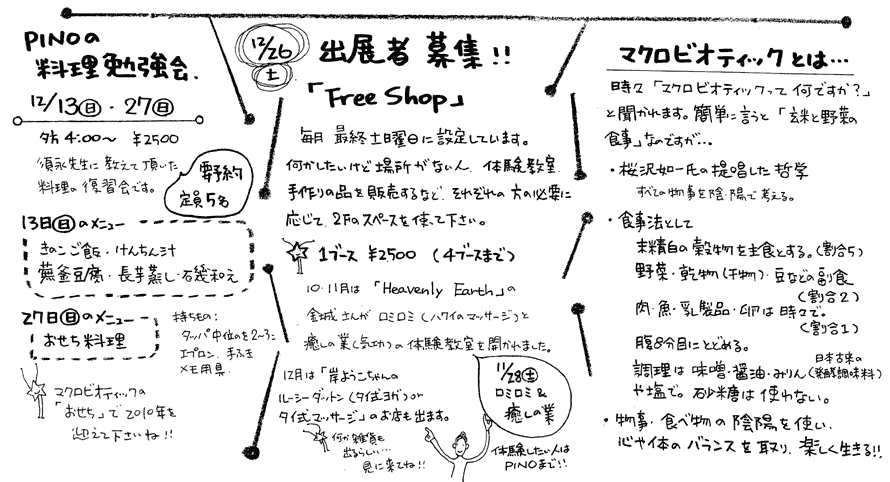 PINOの
料理勉強会.
12/13㊐・27㊐
夕方4:00〜 ¥2500
須永先生に教えて頂いた
料理の復習会です。
要予約
定員5名
13日㊐のメニュー
きのこご飯・けんちん汁
蕪釜豆腐・長芋蒸し・石磯和え
27日㊐のメニュー
おせち料理
持ちもの:
タッパ中位のを2〜3こ
エプロン、手ふき
メモ用具.
マクロビオティックの
「おせち」で2010年を
迎えて下さいね!!
12/26
土
出展者募集!!
「Free Shop」
毎月 最終土曜日に設定しています。
何かしたいけど場所がない人、体験教室、
手作りの品を販売するなど、それぞれの方の必要に
応じて、2Fのスペースを使って下さい。
1ブース ¥2500 (4ブースまで)
10・11月は「Heavenly Earth」の
金城さんが ロミロミ(ハワイのマッサージ)と
癒しの業(気功)の体験教室を開かれました。
12月は「岸ようこちゃんの
ルーシーダットン(タイ式ヨガ)or
タイ式マッサージ」のお店も出ます。
何か雑貨も
出るらしい…
見に来てね!!
11/28㊏
ロミロミ&
癒しの業
体験したい人は
PINOまで!!
マクロビオティックとは…
時々「マクロビオティックって何ですか?」
と聞かれます。簡単に言うと「玄米と野菜の
食事」なのですが…
・桜沢如一氏の提唱した哲学
すべての物事を陰・陽で考える。
・食事法として
未精白の穀物を主食とする。(割合5)
野菜・乾物(干物)・豆などの副食
(割合2)
肉・魚・乳製品・卵は時々で。
(割合1)
腹8分目にとどめる。
調理は味噌・醤油・みりん(日本古来の発酵調味料)
や塩で。砂糖は使わない。
・物事・食べ物の陰陽を使い、
心や体のバランスを取り、楽しく生きる!!